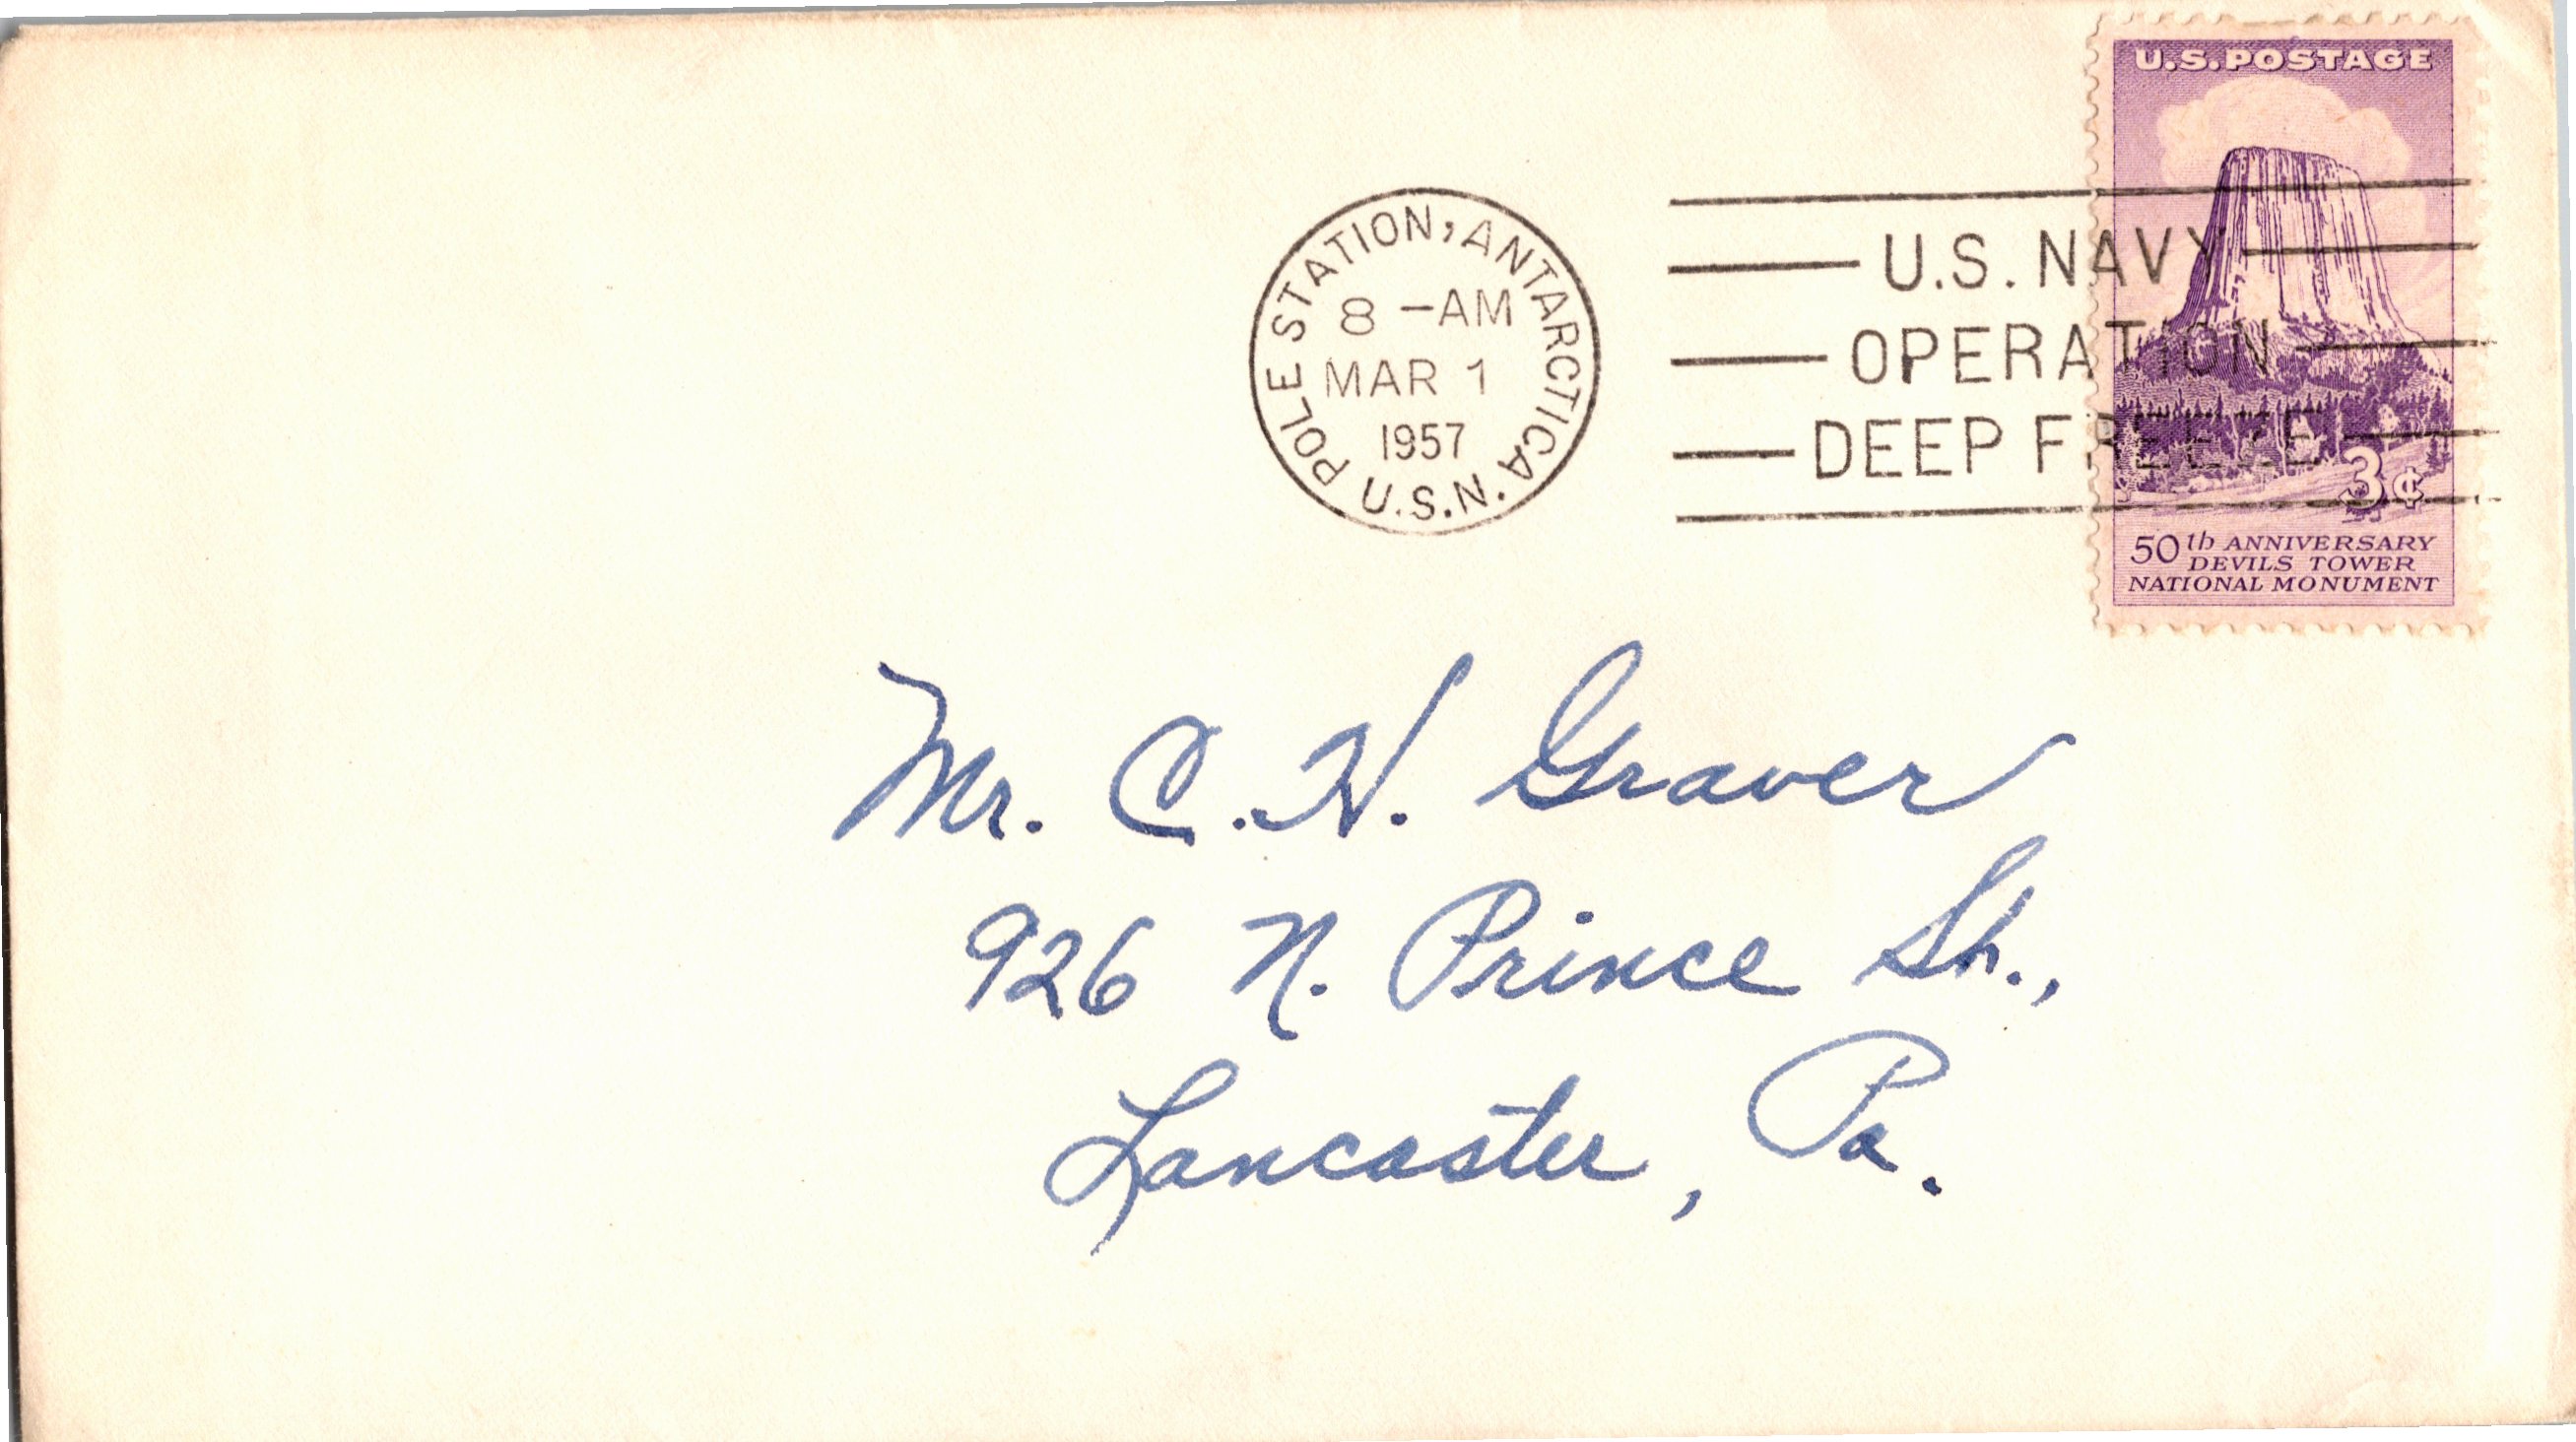 U.S. POSTAGE
POLE STATION, ANTARCTICA. U.S.N.
8 -AM
MAR 1
1957
U.S. NAVY
OPERATION
DEEP FREEZE
3¢
50th ANNIVERSARY
DEVILS TOWER
NATIONAL MONUMENT
Mr. C. H. Graver
926 N. Prince St.,
Lancaster, Pa.